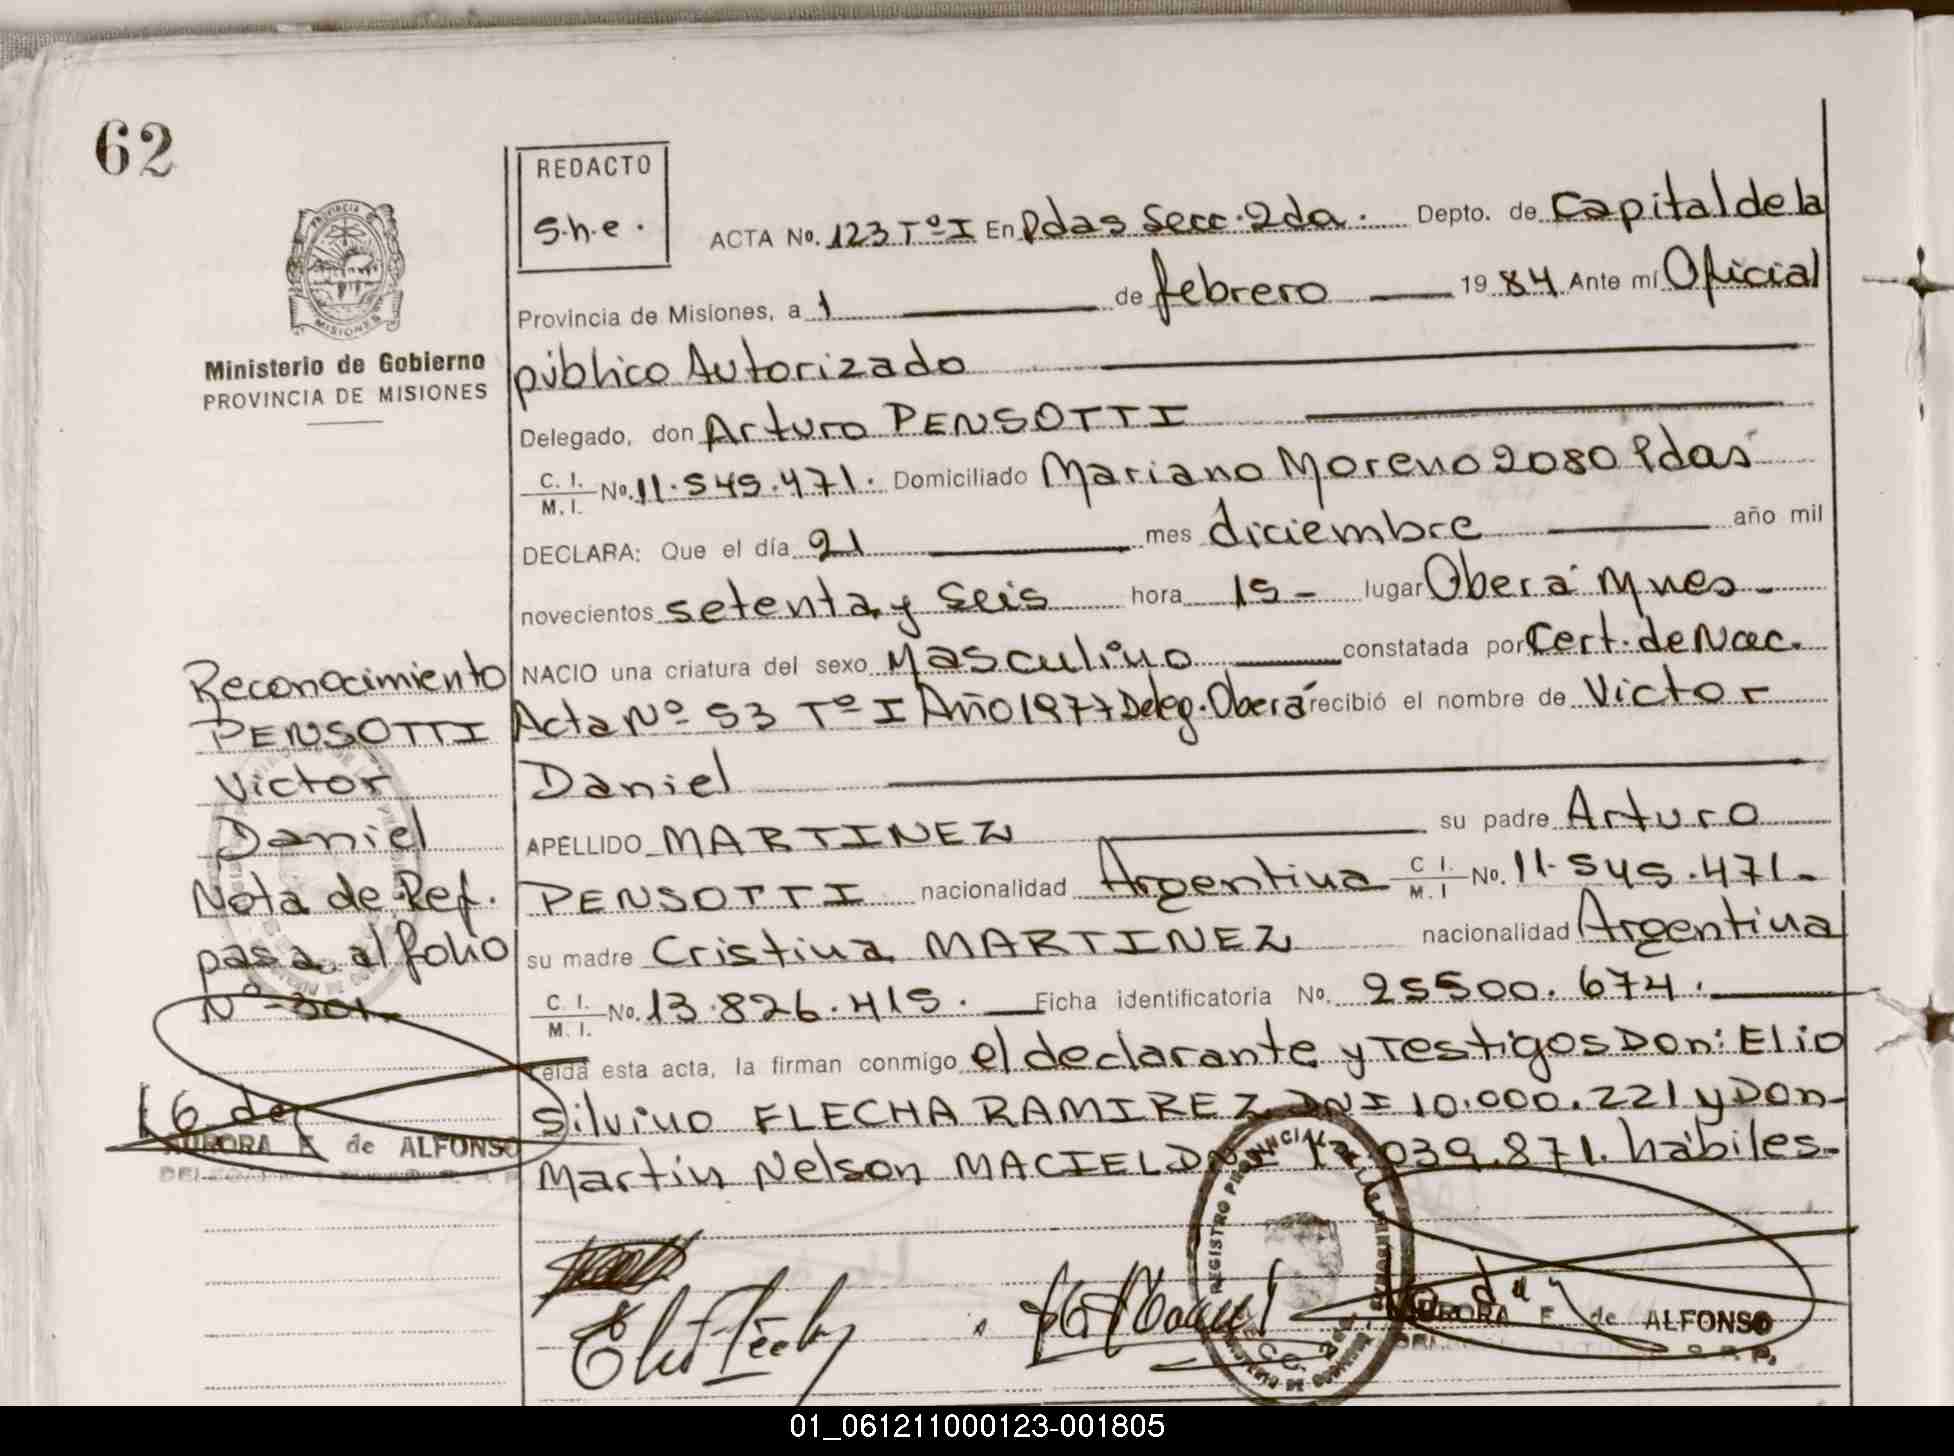 62
REDACTO
s.h.e.
ACTA No. 123 Tº I En Pdas Secc. 2da. Depto. de Capital de la
Provincia de Misiones, a 1 de febrero 1984 Ante mí Oficial
público Autorizado
Delegado, don Arturo PENSOTTI
C. I. M. I. No. 11.545.471. Domiciliado Mariano Moreno 2080 Pdas
DECLARA: Que el día 21 mes diciembre año mil
novecientos setenta y seis hora 15 - lugar Oberá Mnes -
NACIO una criatura del sexo Masculino constatada por Cert. de Nac.
Acta Nº 53 Tº I Año 1977 Deleg. Oberá recibió el nombre de Victor
Daniel
APELLIDO MARTINEZ su padre Arturo
PENSOTTI nacionalidad Argentina C I. M. I No. 11.545.471.
su madre Cristina MARTINEZ nacionalidad Argentina
C. I. M. I. No. 13.826.415. Ficha identificatoria No. 25500.674.
Leída esta acta, la firman conmigo el declarante y Testigos Don: Elio
Silvino FLECHA RAMIREZ DNI 10.000.221 y Don
Martin Nelson MACIEL DNI 17.039.871. hábiles.
PROVINCIA DE
MISIONES
Ministerio de Gobierno
PROVINCIA DE MISIONES
Reconocimiento
PENSOTTI
Victor
Daniel
Nota de Ref.
pasa al folio
Nº 301.
AURORA E. de ALFONSO
REGISTRO PROVINCIAL
AURORA E. de ALFONSO
O.R.P.
01_061211000123-001805